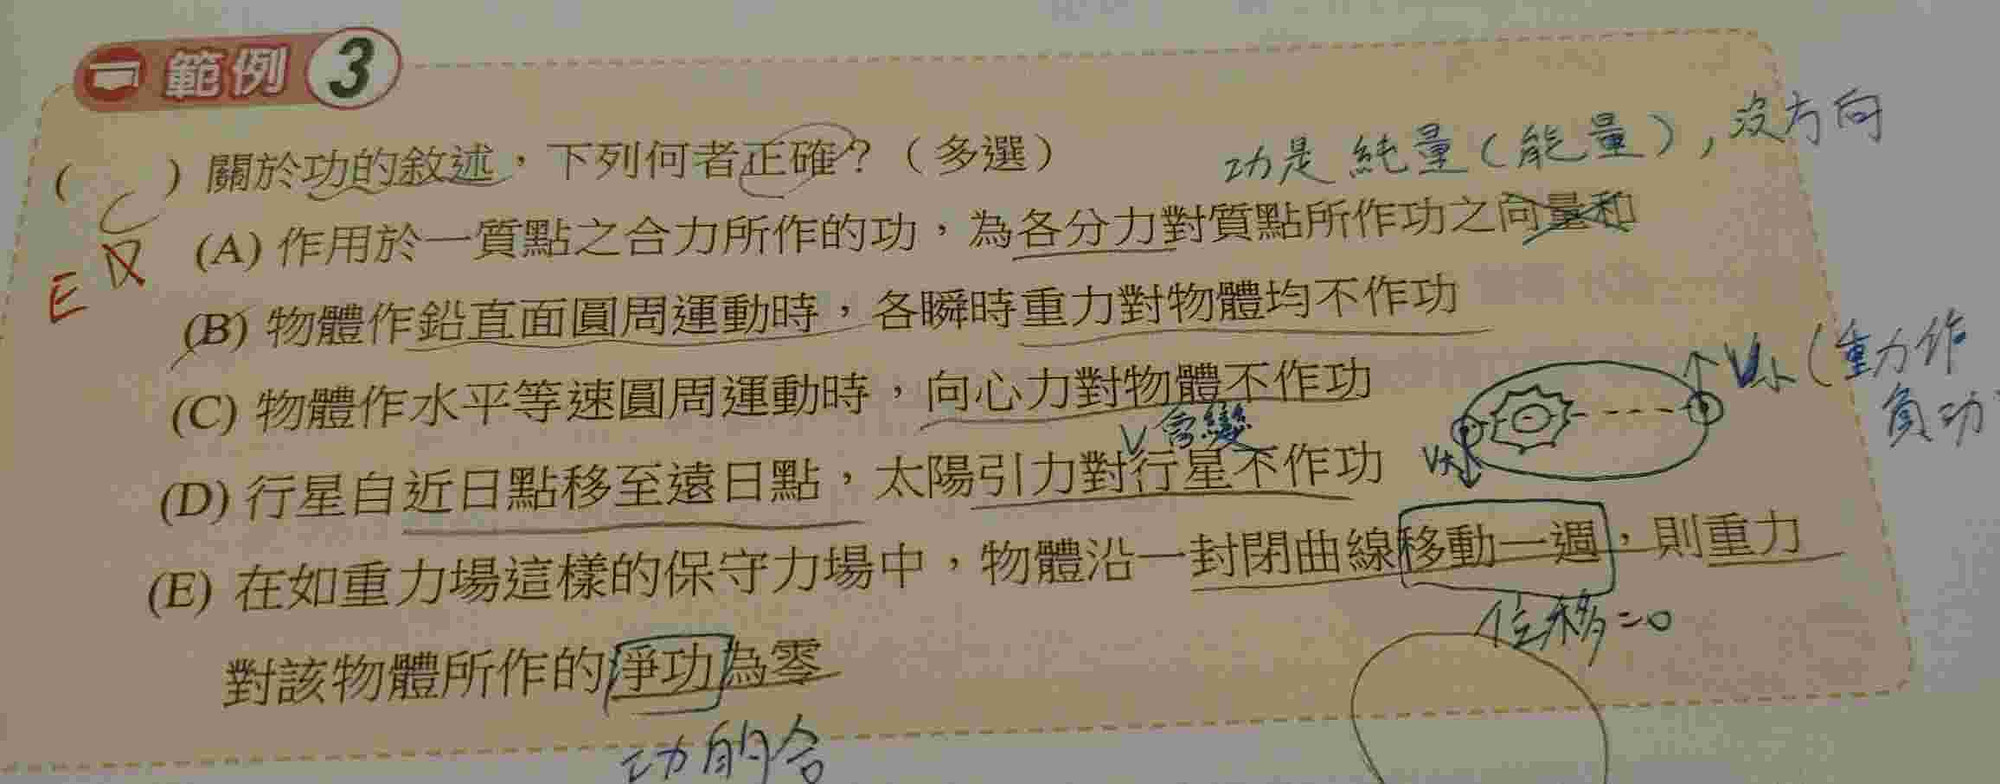 範例 3
( C ) 關於功的敘述，下列何者正確？（多選）
功是純量（能量），沒方向
E
(A) 作用於一質點之合力所作的功，為各分力對質點所作功之向量和
(B) 物體作鉛直面圓周運動時，各瞬時重力對物體均不作功
(C) 物體作水平等速圓周運動時，向心力對物體不作功
V小（重力作
負功
V會變
V大
(D) 行星自近日點移至遠日點，太陽引力對行星不作功
(E) 在如重力場這樣的保守力場中，物體沿一封閉曲線移動一週，則重力
位移=0
對該物體所作的淨功為零
功的合